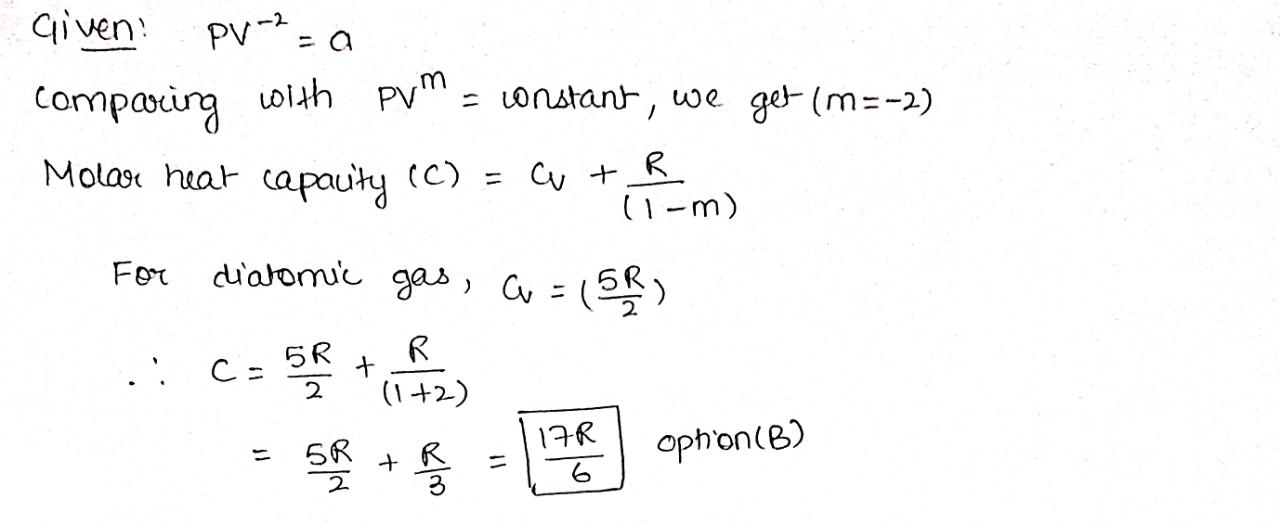 Given: PV⁻² = a
Comparing with PVᵐ = constant, we get (m=-2)
Molar heat capacity (C) = Cv + R/(1-m)
For diatomic gas, Cv = (5R/2)
∴ C = 5R/2 + R/(1+2)
= 5R/2 + R/3 = 17R/6 option(B)